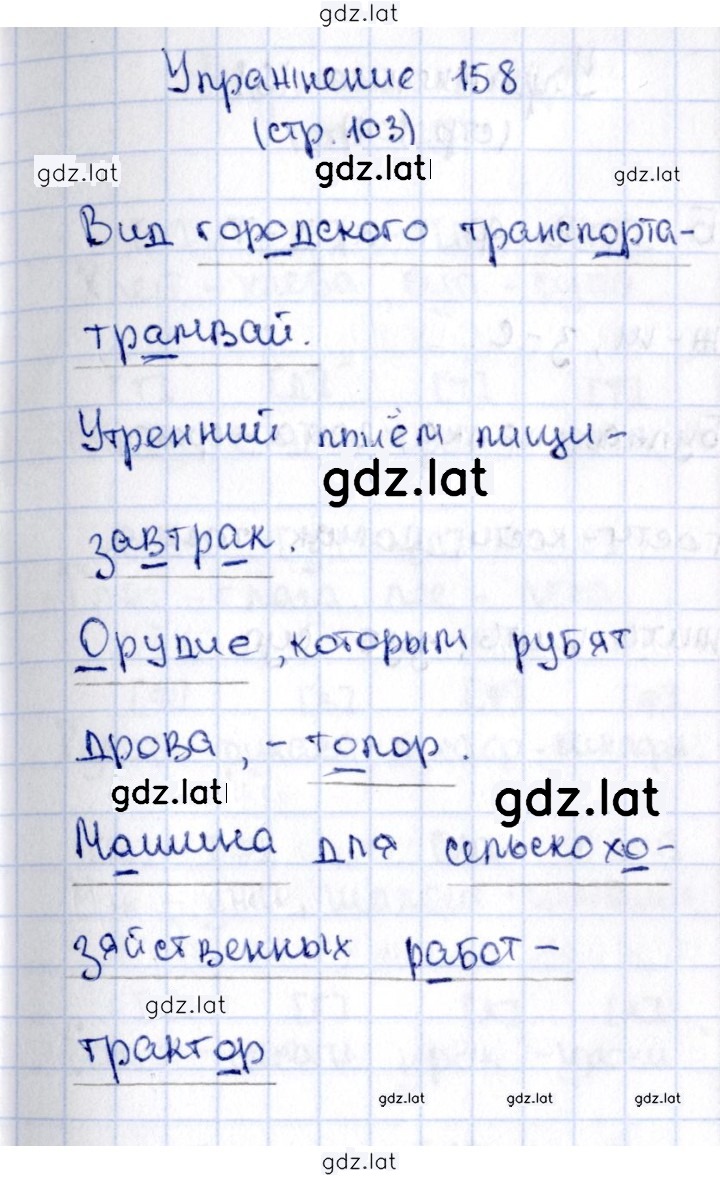 gdz.lat
Упражнение 158
(стр. 103)
gdz.lat gdz.lat gdz.lat
Вид городского транспорта-
трамвай.
Утренний приём пищи -
gdz.lat
завтрак.
Орудие, которым рубят
дрова, - топор.
gdz.lat gdz.lat
Машина для сельскохо-
зяйственных работ -
gdz.lat
трактор
gdz.lat gdz.lat gdz.lat
gdz.lat